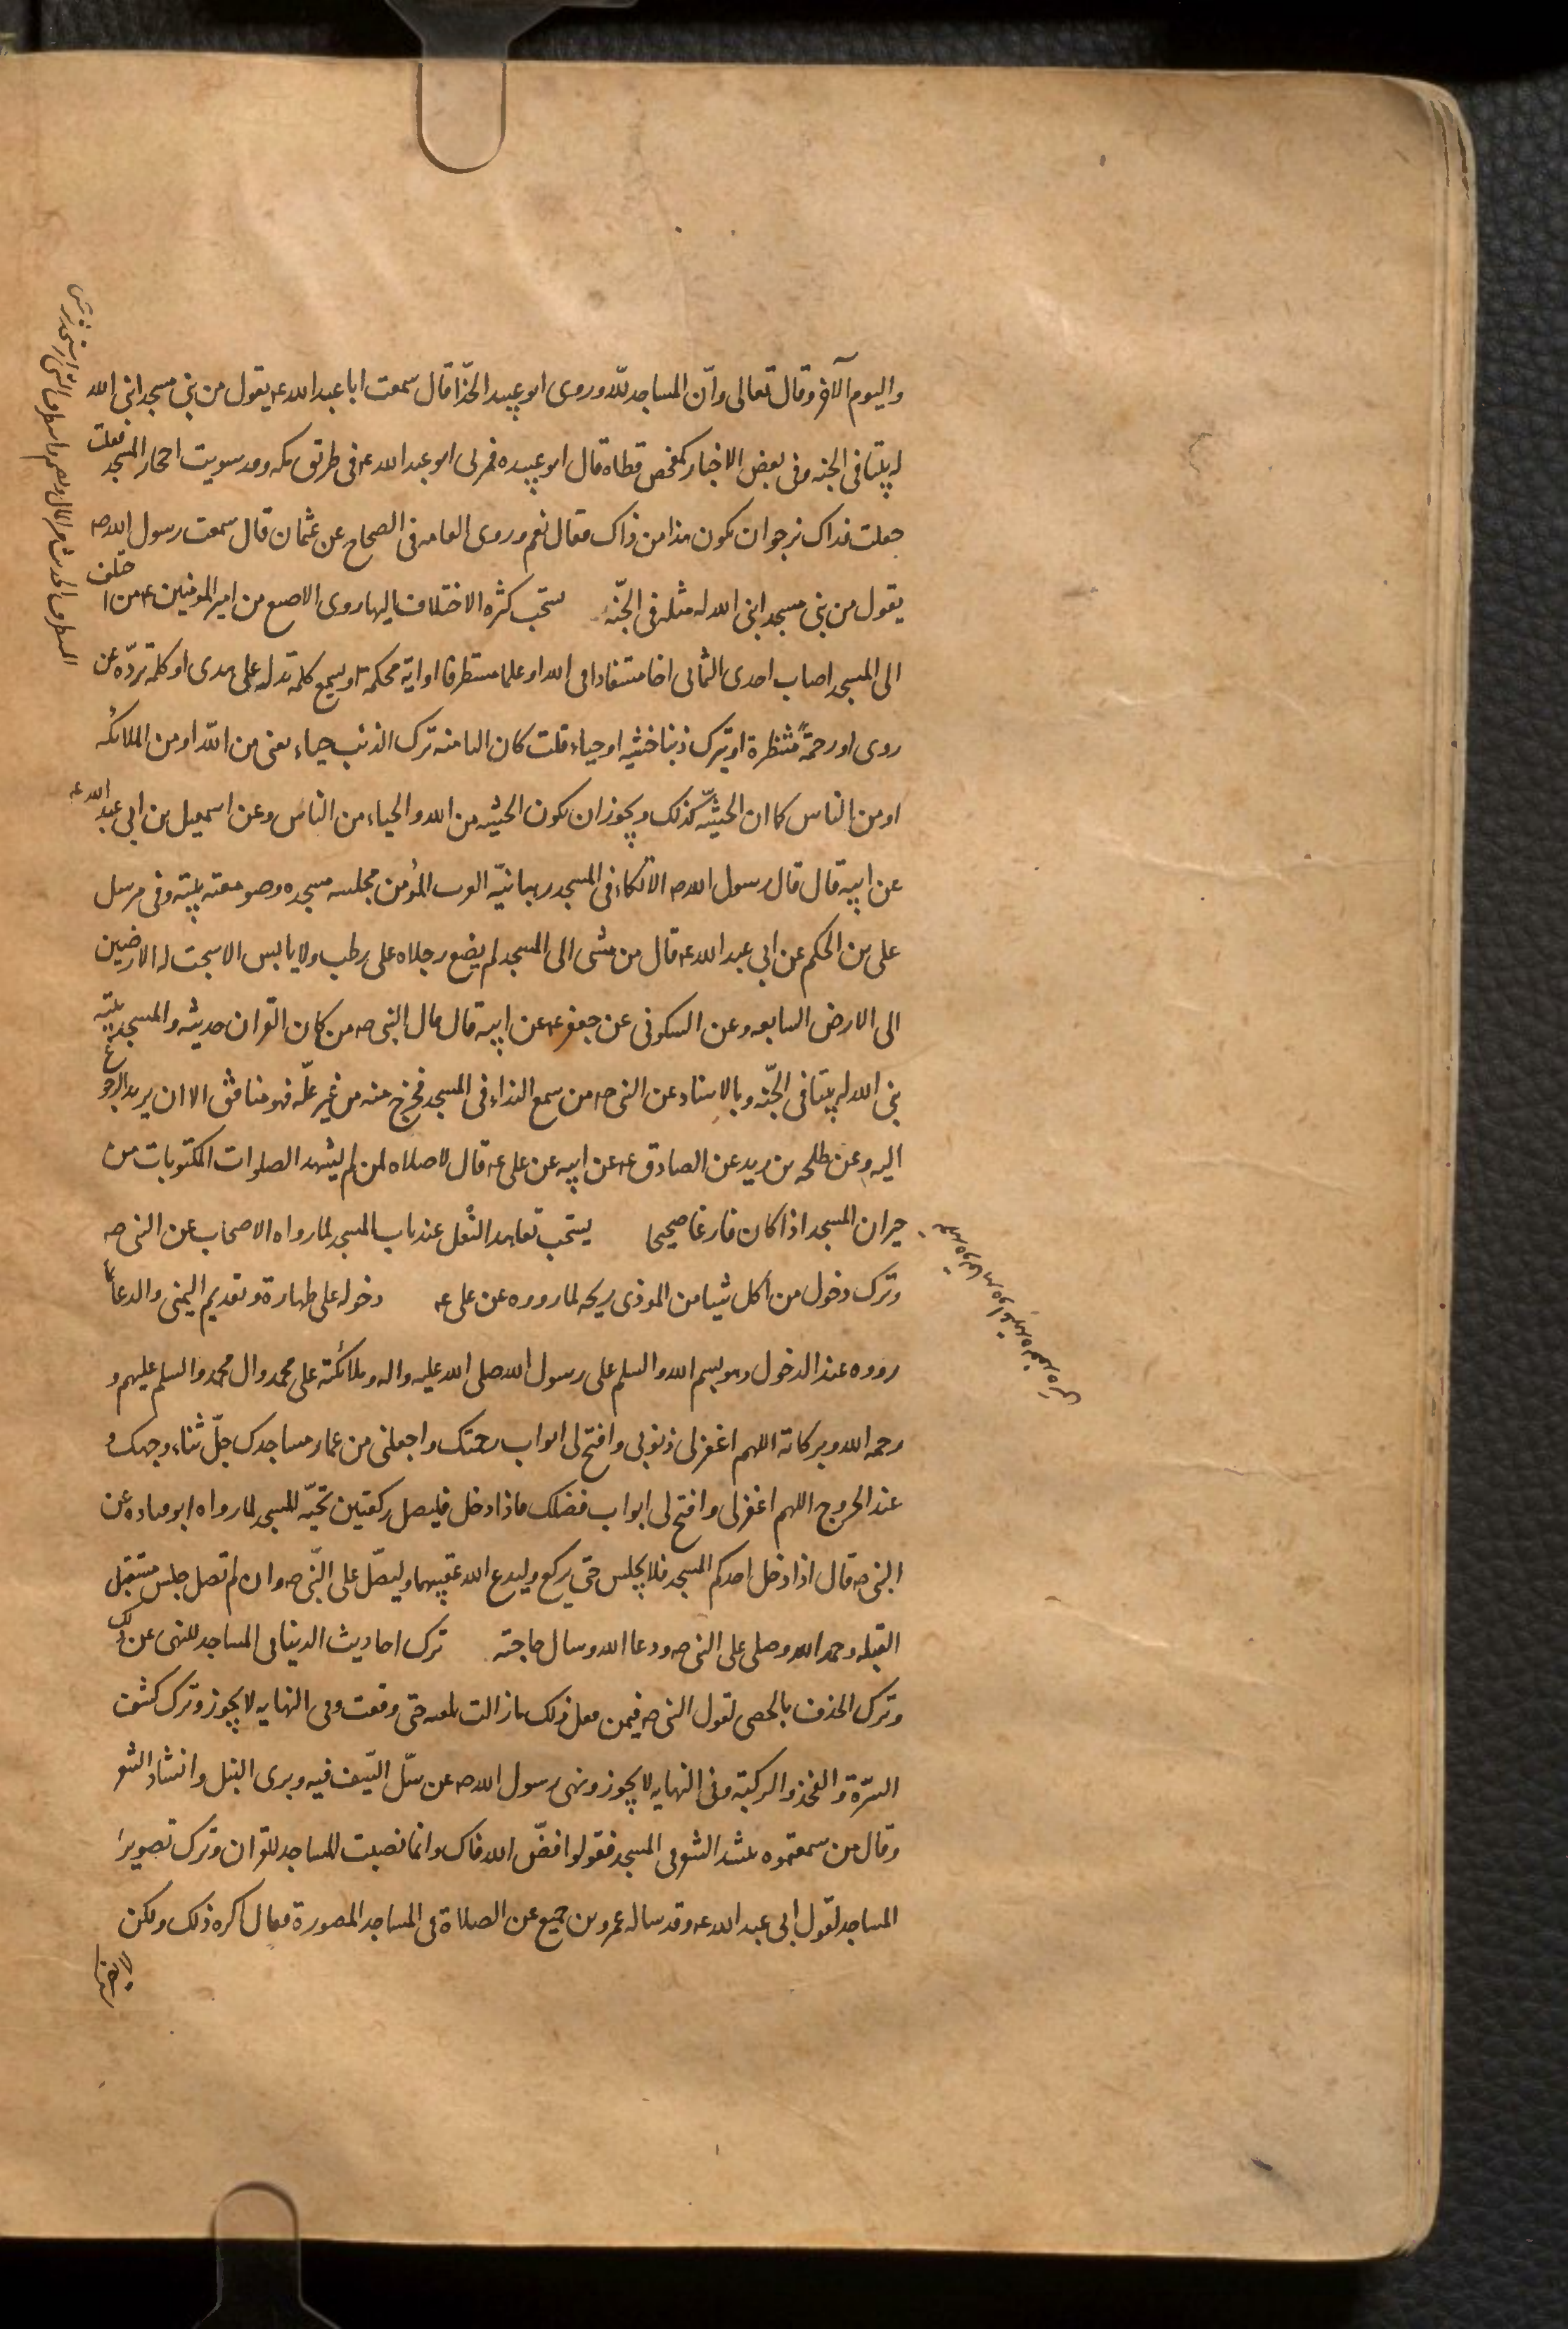 واليوم الآخر وقال تعالى وانّ المساجد للّه وروى ابو عبيد الحذّا قال سمعت ابا عبد الله ع يقول من بنى مسجدا بنى الله
له بيتا فى الجنه وفى بعض الاخبار كمفحص قطاة قال ابو عبيده فمر لى ابو عبد الله ع فى طريق مكه وقد سويت احجار المسجد فقلت
جعلت فداك نرجوا ان يكون هذا من ذاك فقال نعم وروى العامه فى الصحاح عن عثمان قال سمعت رسول الله ص
يقول من بنى مسجدا بنى الله له مثله فى الجنّه يستحب كثره الاختلاف اليها روى الاصبع من امير المومنين ع من اختلف
الى المسجد اصاب احدى الثمانى اخا مستفادا فى الله او علما مستطرفا او اية محكمة او يسمع كلمه تدله على هدى او كلمة تردّه عن
ردى او رحمةً منتظرة او يترك ذنبا خشيه او حياء قلت كان الثامنه ترك الذنب حياء يعنى من اللّه او من الملائكه
او من الناس كما ان الخشيّه كذلك ويجوز ان يكون الخشيه من الله والحياء من الناس وعن اسمعيل بن ابى عبد الله ع
عن ابيه قال قال رسول الله ص الاتكاء فى المسجد رهبانيّه العرب المؤمن مجلسه مسجده وصومعته بيته وفى مرسل
على بن الحكم عن ابى عبد الله ع قال من مشى الى المسجد لم يضع رجلاه على رطب ولا يابس الا سبحت له الارضين
الى الارض السابعه وعن السكونى عن جعفر ع عن ابيه قال قال النبى ص من كان القران حديثه والمسجد بيته
بنى الله له بيتا فى الجّنه وبالاسناد عن النبى ص من سمع النداء فى المسجد فخرج منه من غير علّه فهو منافق الا ان يريد الرجوع
اليه وعن طلحه بن زيد عن الصادق ع عن ابيه عن على ع قال لا صلاه لمن لم يشهد الصلوات المكتوبات من
جيران المسجد اذا كان فارغا صحيحا يستحب تعاهد النّعل عند باب المسجد لما رواه الاصحاب عن النبى ص
وترك دخول من اكل شيا من الموذى ريحه لما رووه عن على ع دخوله على طهارة وتقديم اليمنى والدعا بما
رووه عند الدخول وهو بسم الله والسلم على رسول الله صلى الله عليه واله وملائكته على محمد وال محمد والسلم عليهم و
رحمه الله وبركاته اللهم اغفر لى ذنوبى وافتح لى ابواب رحمتك واجعلنى من عمار مساجدك جلّ ثناء وجهك و
عند الخروج اللهم اغفر لى وافتح لى ابواب فضلك فاذا دخل فليصل ركعتين تحيّه للمسجد لما رواه ابو قتاده عن
النبى ص قال اذا دخل احدكم المسجد فلا يجلس حتى يركع وليدع الله عقيبهما وليصّل على النّبى ص وان لم تصل جلس مستقبل
القبله وحمد الله وصلى على النبى ص ودعا الله وسال حاجته ترك احاديث الدينا فى المساجد للنهى عن ذلك
وترك الخذف بالحصى لقول النبى ص فيمن فعل ذلك ما زالت تلعنه حتى وقعت وفى النهايه لا يجوز وترك كشف
السّرة والفخذ والركبة وفى النهايه لا يجوز ونهى رسول الله ص عن سّل السّيف فيه وبرى النبل وانشاد الشعر
وقال من سمعتموه ينشد الشعر فى المسجد فقولوا فضّ الله فاك وانما نصبت المساجد للقران وترك تصوير
المساجد لقول ابى عبد الله ع وقد ساله عمرو بن جميع عن الصلاة فى المساجد المصورة فقال اكره ذلك ولكن
لا يضركم